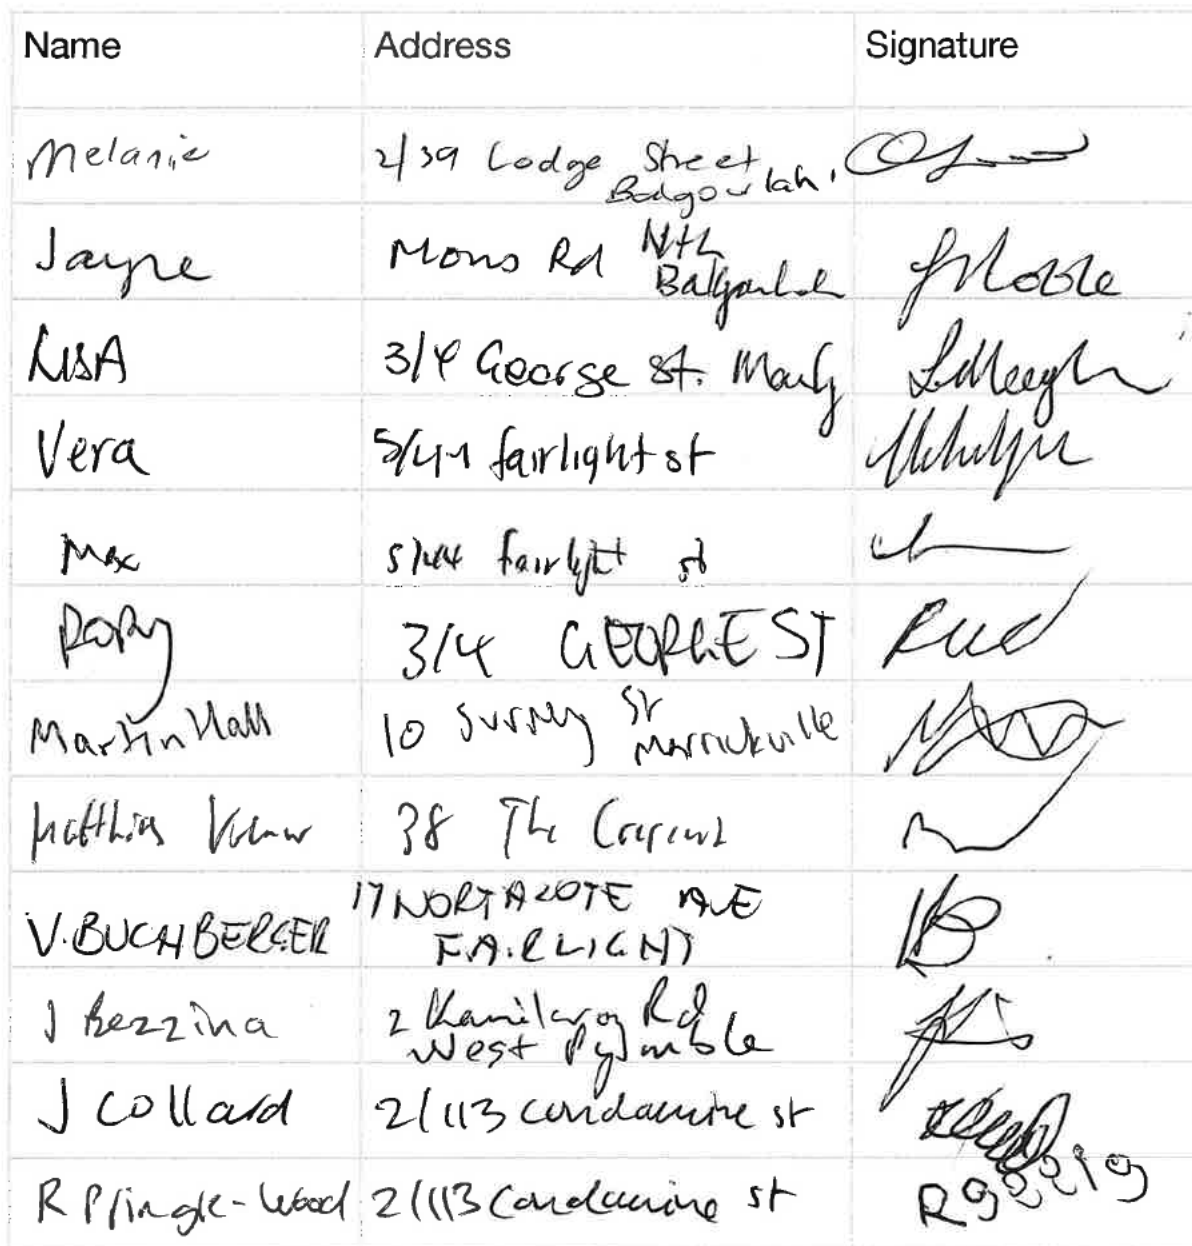 Name Address Signature
Melanie 2/39 Lodge Street
Balgowlah
Jayne Mons Rd Nth
Balgowlah
LISA 3/4 George St. Manly
Vera 5/44 fairlight st
Max 5/44 fairlight st
RORY 3/4 GEORGE ST
Martin Hall 10 Surrey St
Marrickville
Matthias 38 The Crescent
V. BUCHBERGER 17 NORTHCOTE AVE
FAIRLIGHT
J Bezzina 2 Kamilaroy Rd
West Pymble
J Collard 2/113 Condamine st
R Pringle-Wood 2/113 Condamine st